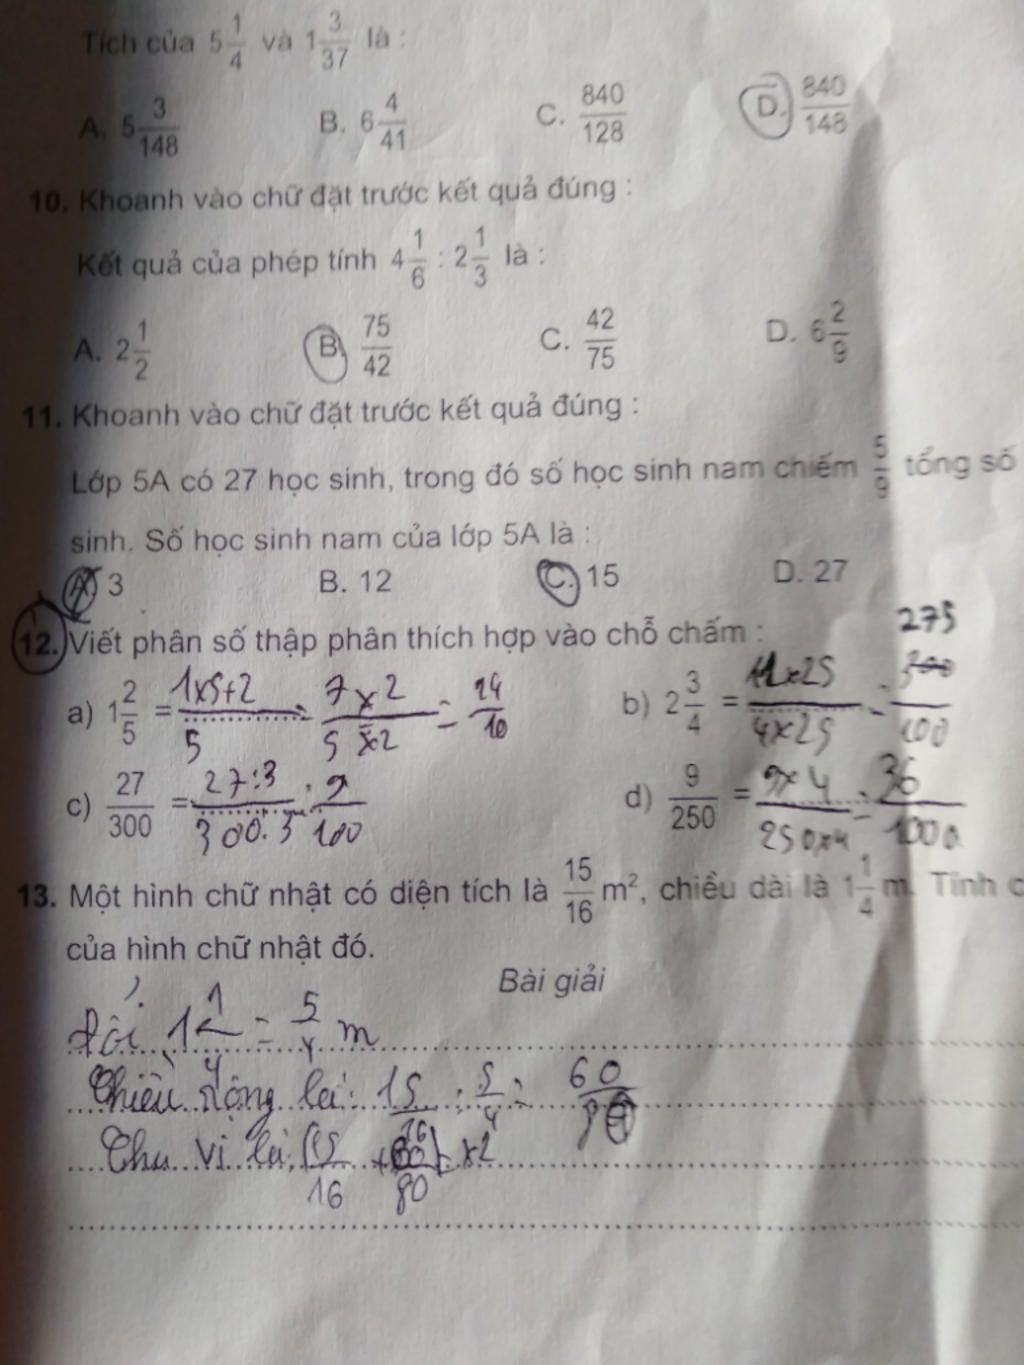 Tích của 5 1/4 và 1 3/37 là :
A. 5 3/148 B. 6 4/41 C. 840/128 D. 840/148
10. Khoanh vào chữ đặt trước kết quả đúng :
Kết quả của phép tính 4 1/6 : 2 1/3 là :
A. 2 1/2 B. 75/42 C. 42/75 D. 6 2/9
11. Khoanh vào chữ đặt trước kết quả đúng :
Lớp 5A có 27 học sinh, trong đó số học sinh nam chiếm 5/9 tổng số
sinh. Số học sinh nam của lớp 5A là :
A. 3 B. 12 C. 15 D. 27
12. Viết phân số thập phân thích hợp vào chỗ chấm :
a) 1 2/5 = 1x5+2/5 = 7x2/5x2 = 14/10 b) 2 3/4 = 11x25/4x25 = 275/100
c) 27/300 = 27:3/300:3 = 9/100 d) 9/250 = 9x4/250x4 = 36/1000
13. Một hình chữ nhật có diện tích là 15/16 m², chiều dài là 1 1/4 m. Tính
của hình chữ nhật đó.
Bài giải
Đổi 1 1/4 = 5/4 m
Chiều rộng là: 15/16 : 5/4 = 60/80
Chu vi là: (15/16 + 60/80) x2